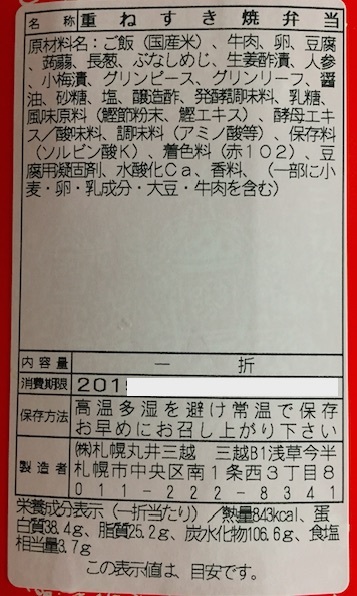 名称 重ねすき焼弁当
原材料名：ご飯（国産米）、牛肉、卵、豆腐
、蒟蒻、長葱、ぶなしめじ、生姜酢漬、人参
、小梅漬、グリンピース、グリーンリーフ、醤
油、砂糖、塩、醸造酢、発酵調味料、乳糖、
風味原料（鰹節粉末、鰹エキス）、酵母エキ
ス／酸味料、調味料（アミノ酸等）、保存料
（ソルビン酸K）、着色料（赤102）、豆
腐用凝固剤、水酸化Ca、香料、（一部に小
麦・卵・乳成分・大豆・牛肉を含む）
内容量 一折
消費期限 201
保存方法 高温多湿を避け常温で保存
お早めにお召し上がり下さい
製造者 ㈱札幌丸井三越 三越B1浅草今半
札幌市中央区南1条西3丁目8
011-222-8341
栄養成分表示（一折当たり）／熱量843kcal、蛋
白質38.4g、脂質25.2g、炭水化物106.6g、食塩
相当量3.7g
この表示値は、目安です。